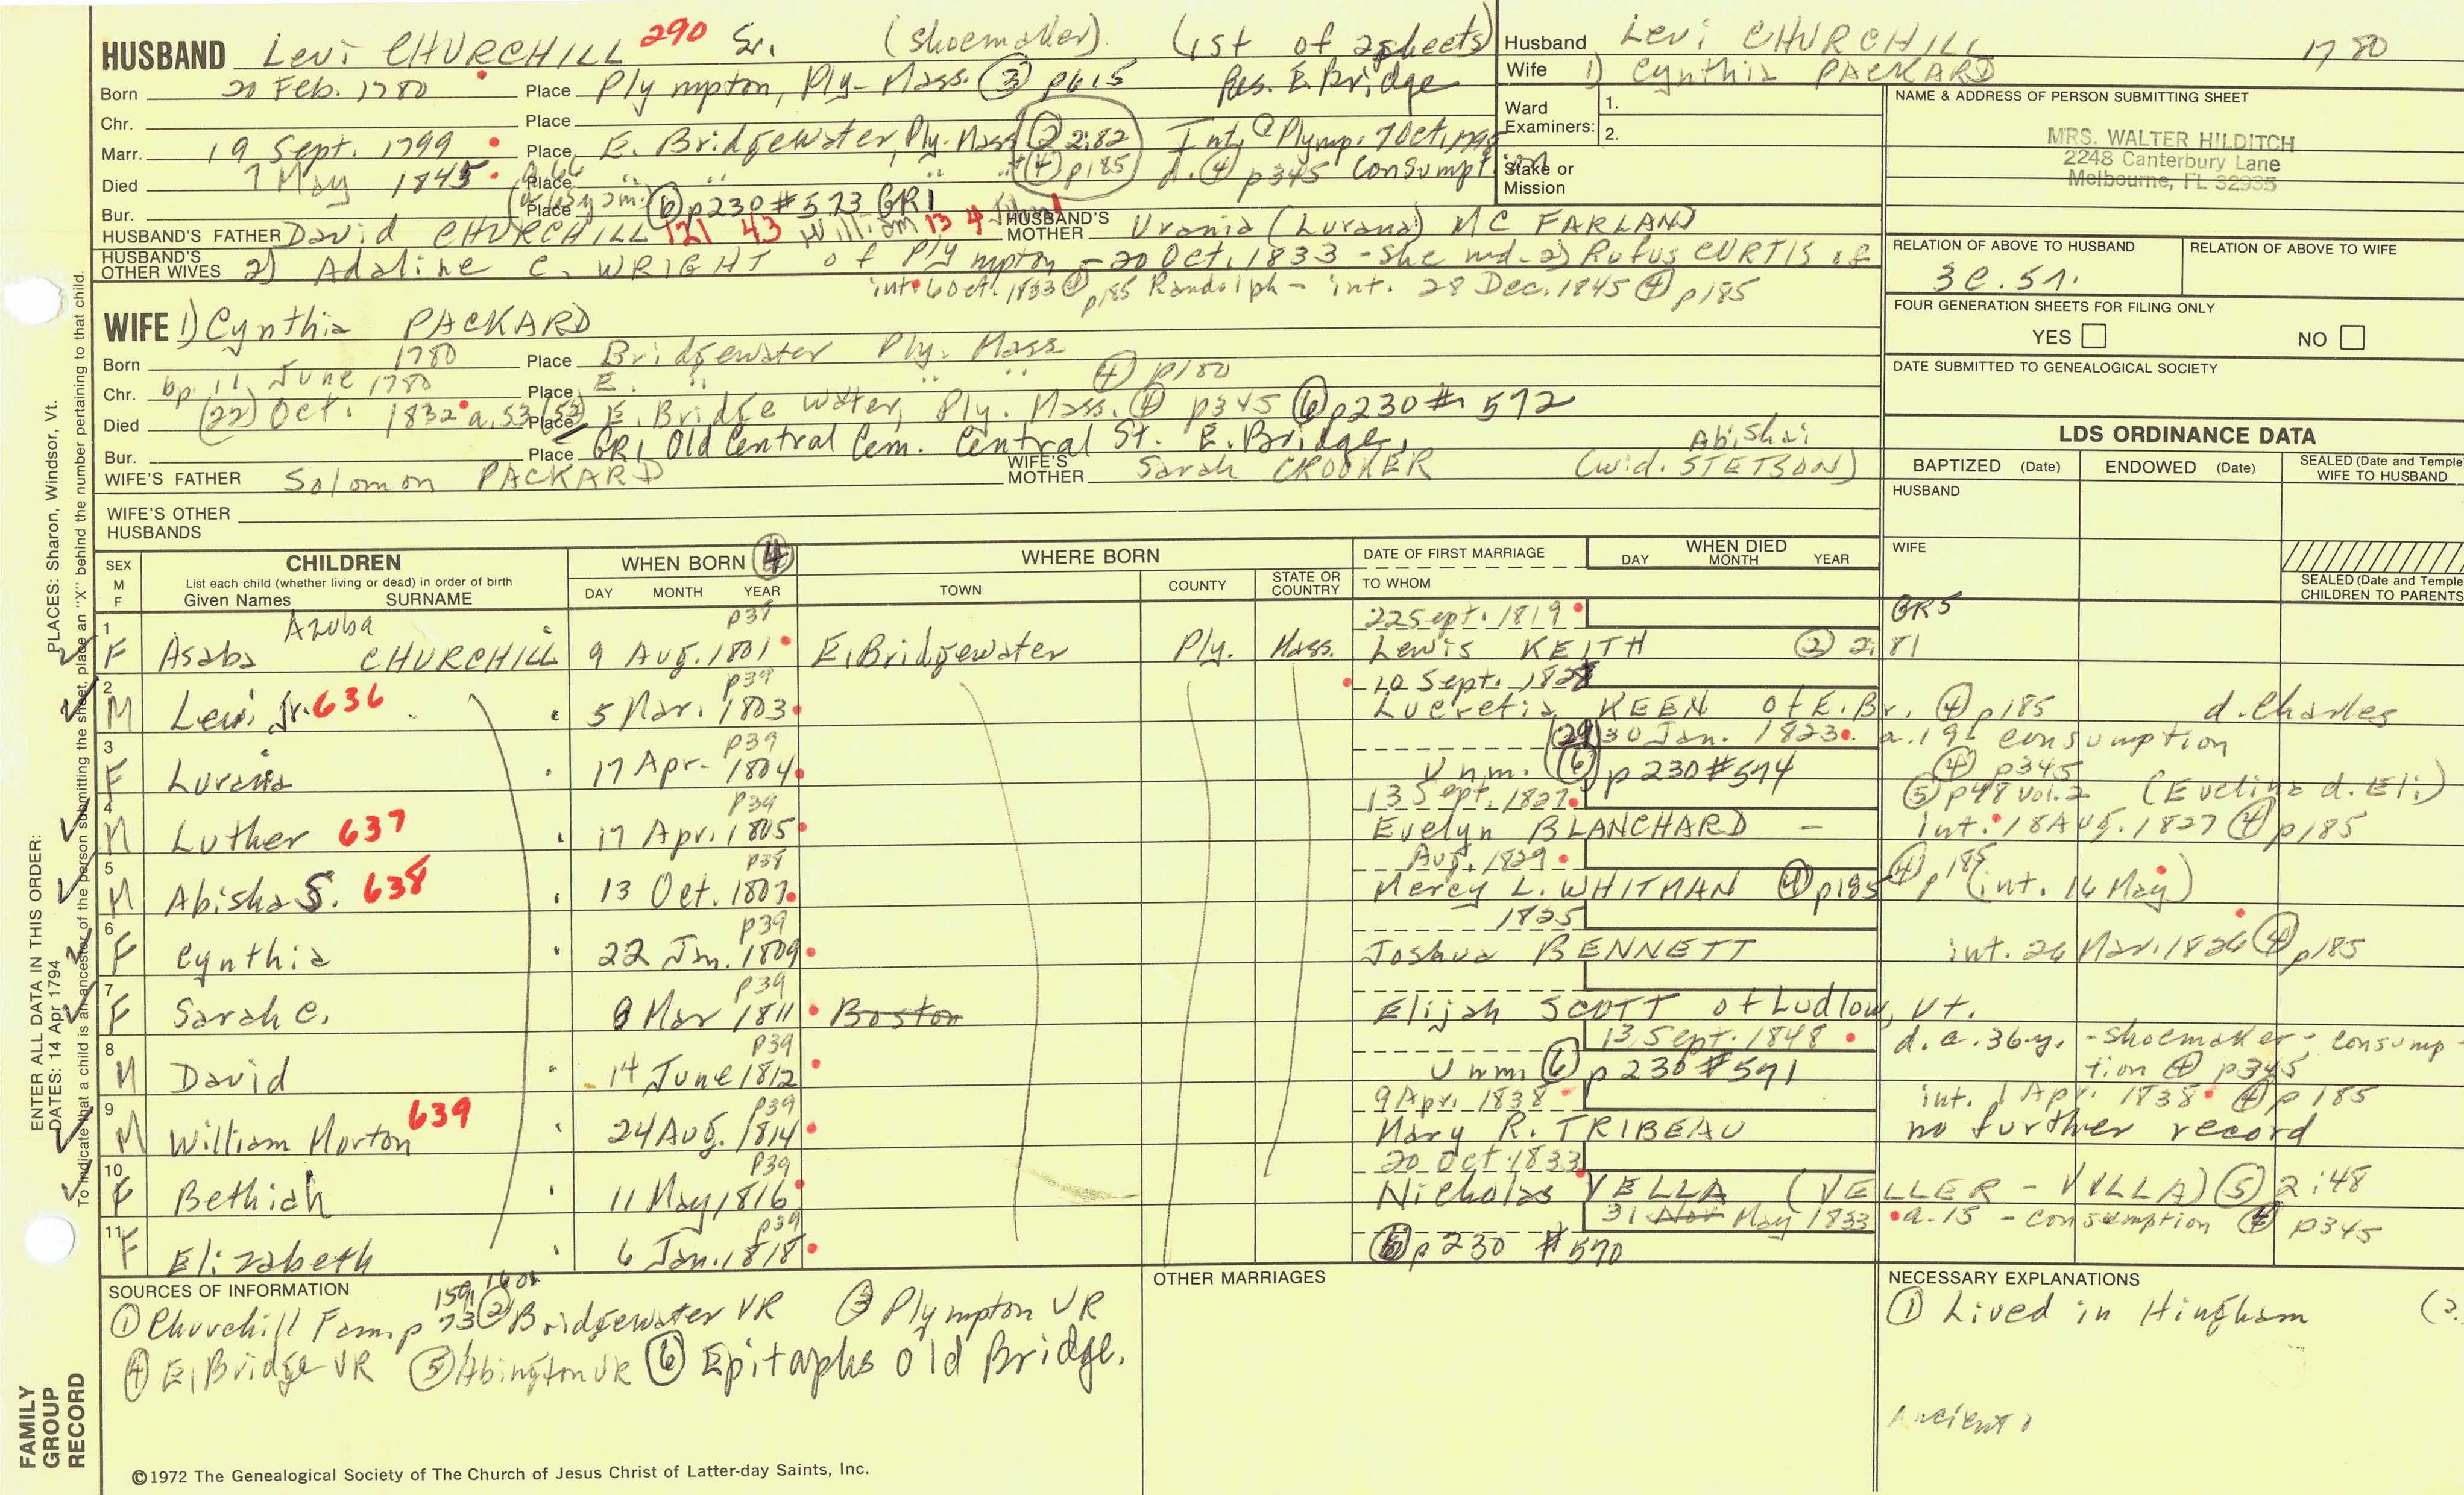 HUSBAND Levi CHURCHILL 290 Sr. (shoemaker) (1st of 2 sheets)
Born 20 Feb. 1780 Place Plympton, Ply- Mass. ③ p615 Res. E. Bridge
Chr. Place
Marr. 19 Sept. 1799 Place E. Bridgewater, Ply- Mass ② 2:82 Int @ Plymp. 7 Oct. 1798
Died 7 May 1845 a. 66 Place " " " " ④ p185 d. ④ p345 consumption
Bur. Place ⑥ p230 #573 GR1
HUSBAND'S FATHER David CHURCHILL 121 43 William 13 4 John 1 HUSBAND'S MOTHER Urania (Lurana) MC FARLAND
HUSBAND'S OTHER WIVES 2) Adaline C. WRIGHT of Plympton - 20 Oct. 1833 - She md. 2) Rufus CURTIS of
int. 6 Oct. 1833 ④ p185 Randolph - int. 28 Dec. 1845 ④ p185
WIFE 1) Cynthia PACKARD
Born 1780 Place Bridgewater Ply. Mass
Chr. bp. 11 June 1780 Place E. " " " ④ p100
Died (22) Oct. 1832 a. 53 (52) Place E. Bridgewater, Ply. Mass. ④ p345 ⑥ p230 # 572
Bur. Place GR1 Old Central Cem. Central St. E. Bridge,
WIFE'S FATHER Solomon PACKARD WIFE'S MOTHER Sarah CROOKER (wid. Abishai STETSON)
WIFE'S OTHER HUSBANDS
Husband Levi CHURCHILL 1780
Wife 1) Cynthia PACKARD
Ward Examiners: 1.
2.
Stake or Mission
NAME & ADDRESS OF PERSON SUBMITTING SHEET
MRS. WALTER HILDITCH
2248 Canterbury Lane
Melbourne, FL 32935
RELATION OF ABOVE TO HUSBAND RELATION OF ABOVE TO WIFE
3C.5r.
FOUR GENERATION SHEETS FOR FILING ONLY
YES NO
DATE SUBMITTED TO GENEALOGICAL SOCIETY
LDS ORDINANCE DATA
BAPTIZED (Date) ENDOWED (Date) SEALED (Date and Temple WIFE TO HUSBAND
HUSBAND
WIFE
SEALED (Date and Temple CHILDREN TO PARENTS
SEX M F CHILDREN WHEN BORN ④ WHERE BORN DATE OF FIRST MARRIAGE WHEN DIED
List each child (whether living or dead) in order of birth
Given Names SURNAME DAY MONTH YEAR TOWN COUNTY STATE OR COUNTRY TO WHOM DAY MONTH YEAR
Azuba p38 22 Sept. 1819 GR5
1 F Asaba CHURCHILL 9 Aug. 1801 E. Bridgewater Ply. Mass. Lewis KEITH ② 2:81
p39 10 Sept. 1828
2 M Levi Jr. 636 5 Mar. 1803 Lucretia KEEN of E. Br. ④ p185 d. Charles
p39 (29) 30 Jan. 1823 a. 19 consumption
3 F Lurania 17 Apr- 1804 Unm. ⑥ p230 #574 ④ p345
p39 13 Sept. 1827 ⑤ p48 Vol. 2 (Evelina d. Eli)
4 M Luther 637 17 Apr. 1805 Evelyn BLANCHARD - int. 18 AUG. 1827 ④ p185
p38 Aug. 1829 ④ p185
5 M Abisha S. 638 13 Oct. 1807 Mercy L. WHITMAN ④ p185 (int. 16 May)
p39 1825
6 F Cynthia 22 Jan. 1809 Joshua BENNETT int. 26 Mar. 1826 ④ p185
p39
7 F Sarah C. 8 Mar 1811 Boston Elijah SCOTT of Ludlow, Vt.
p39 13 Sept. 1848 d. a. 36 y. - shoemaker - consump-
8 M David 14 June 1812 Unm. ⑥ p230 #571 tion ④ p345
p39 9 Apr. 1838 int. 1 Apr. 1838 ④ p185
9 M William Morton 639 24 Aug. 1814 Mary R. TRIBEAU no further record
p39 20 Oct. 1833
10 F Bethiah 11 May 1816 Nicholas VELLA (VELLER - VILLA) ⑤ 2:48
p39 31 Nov May 1833 a. 15 - consumption ④ p345
11 F Elizabeth 6 Jan. 1818 ⑥ p230 #570
SOURCES OF INFORMATION
① Churchill Fam. p 73 159, 160 ② Bridgewater VR ③ Plympton VR
④ E. Bridge VR ⑤ Abington VR ⑥ Epitaphs old Bridge.
OTHER MARRIAGES
NECESSARY EXPLANATIONS
① Lived in Hingham (2.
Ancient
©1972 The Genealogical Society of The Church of Jesus Christ of Latter-day Saints, Inc.
FAMILY GROUP RECORD
ENTER ALL DATA IN THIS ORDER:
DATES: 14 Apr 1794 PLACES: Sharon, Windsor, Vt.
To indicate that a child is an ancestor of the person submitting the sheet, place an "X" behind the number pertaining to that child.